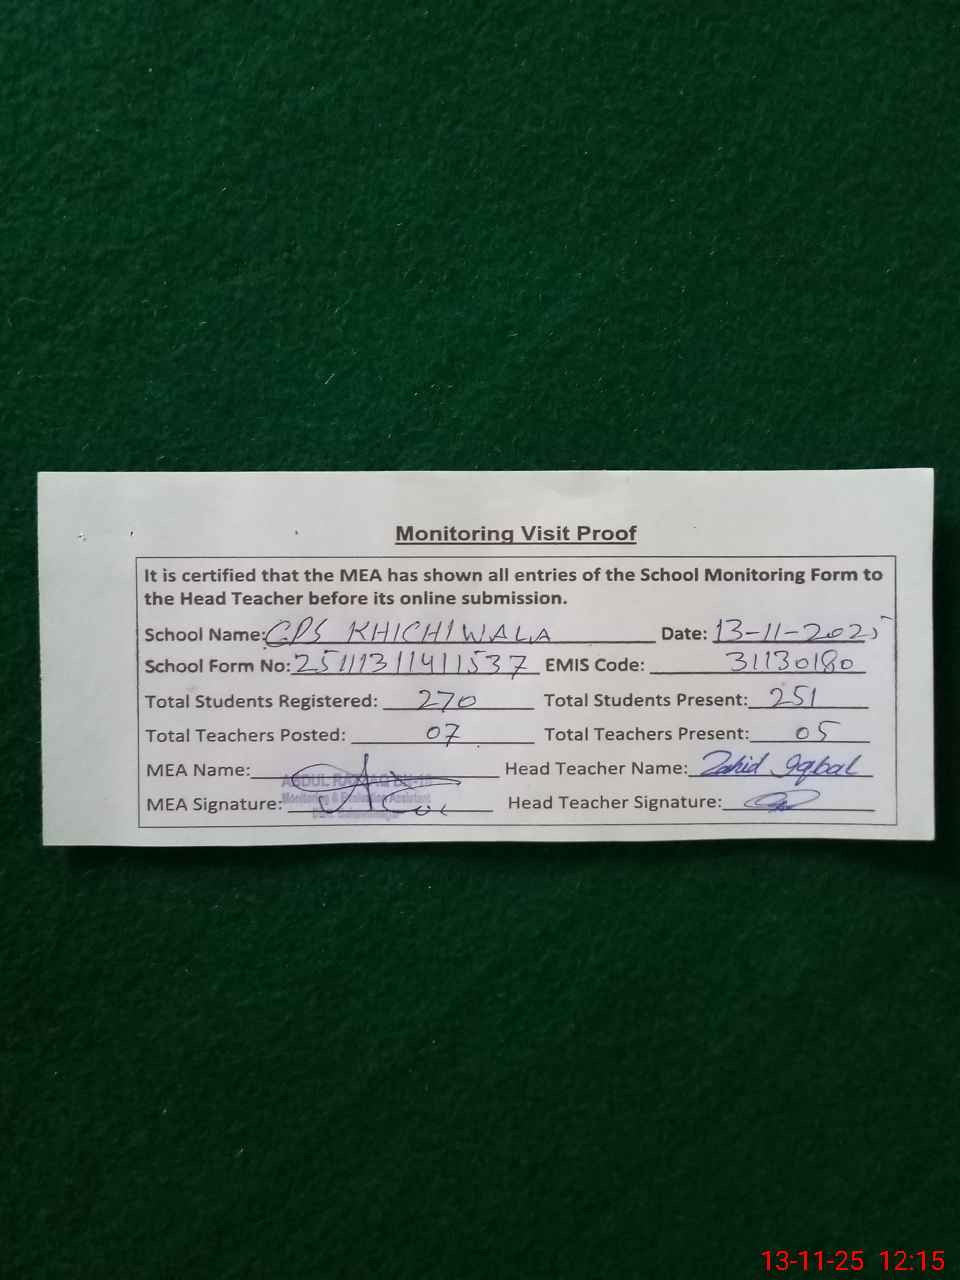 Monitoring Visit Proof
It is certified that the MEA has shown all entries of the School Monitoring Form to
the Head Teacher before its online submission.
School Name: GPS KHICHIWALA Date: 13-11-2025
School Form No: 25111311411537 EMIS Code: 31130180
Total Students Registered: 270 Total Students Present: 251
Total Teachers Posted: 07 Total Teachers Present: 05
MEA Name: Head Teacher Name: Zahid Iqbal
ABDUL
Monitoring & Evaluation Assistant
MEA Signature: Head Teacher Signature:
13-11-25 12:15